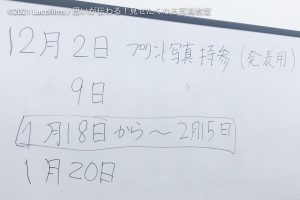 ©2021 Lecofilms / 思いが伝わる！見せたくなる写真教室
12月2日 プリント写真 持参（発表用）
9日 〃
1月18日から～2月15日
1月20日